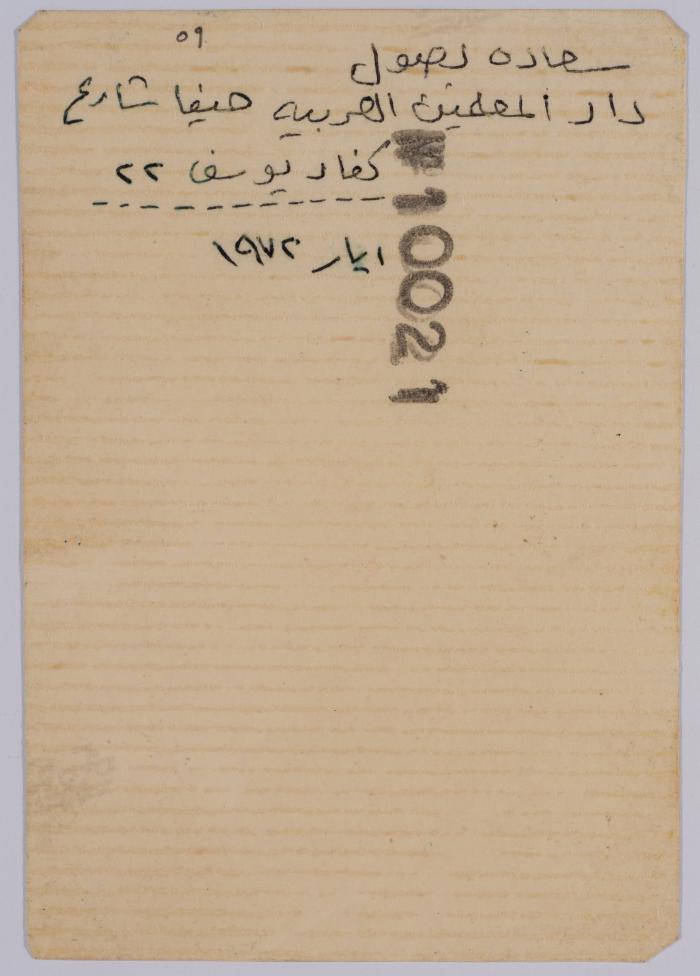 ٥٩
سعاده نصول
دار المعلمين العربيه حيفا شارع
كفار يوسف ٢٢
ايار ١٩٧٢
10021